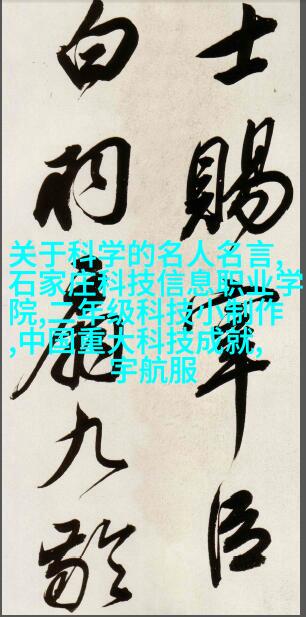 士賜宰臣
白羽扇九齡
关于科学的名人名言,
石家庄科技信息职业学
院,二年级科技小制作
,中国重大科技成就,
宇航服